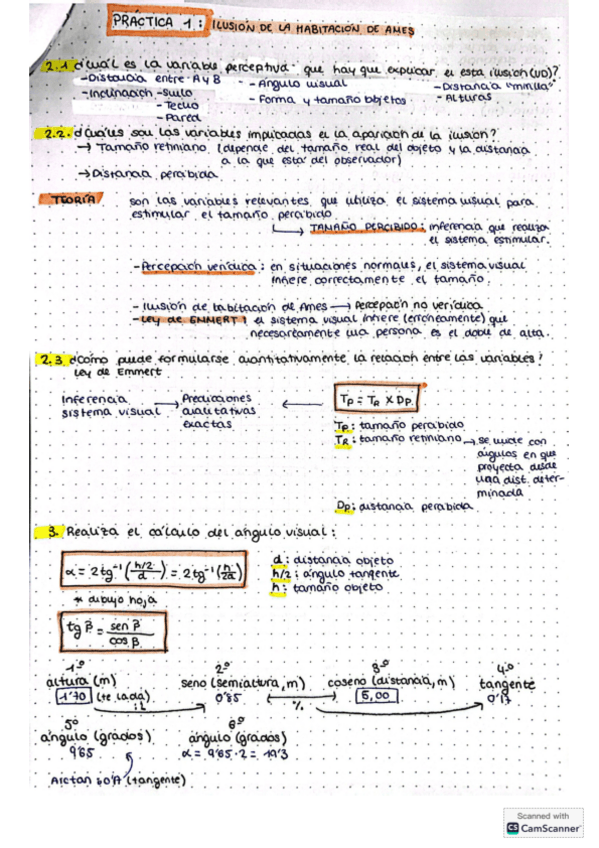 PRÁCTICA 1: ILUSIÓN DE LA HABITACIÓN DE AMES
2.1 ¿Cuál es la variable perceptiva que hay que explicar en esta ilusión (VD)?
-Distancia entre A y B
-Ángulo visual
-Distancia "mirilla"
-Inclinación -Suelo
-Techo
-Pared
-Forma y tamaño objetos
-Alturas
2.2. ¿Cuáles son las variables implicadas en la aparición de la ilusión?
→ Tamaño retiniano (depende del tamaño real del objeto y la distancia
a la que está del observador)
→ Distancia percibida.
TEORÍA
son las variables relevantes que utiliza el sistema visual para
estimular el tamaño percibido
TAMAÑO PERCIBIDO: inferencia que realiza
el sistema estimular.
-Percepción verídica: en situaciones normales, el sistema visual
infiere correctamente el tamaño.
-Ilusión de habitación de Ames → Percepción no verídica
-Ley de EMMERT: el sistema visual infiere (erróneamente) que
necesariamente una persona es el doble de alta.
2.3 ¿Cómo puede formularse cuantitativamente la relación entre las variables?
Ley de Emmert
Inferencia
sistema visual
→ Predicciones
cualitativas
exactas
←
Tp = TR x Dp.
Tp: tamaño percibido
TR: tamaño retiniano → se mide con
ángulos en que
proyecta desde
una dist. deter-
minada
Dp: distancia percibida
3. Realiza el cálculo del ángulo visual:
α = 2tg⁻¹ (h/2 / d) = 2tg⁻¹ (h / 2d)
d: distancia objeto
h/2: ángulo tangente
h: tamaño objeto
* dibujo hoja
tg β = sen β / cos β
1º
altura (m)
1'70 (te la da)
2º
seno (semialtura, m)
0'85
3º
coseno (distancia, m)
5,00
4º
tangente
0'17
:2
%
5º
ángulo (grados)
9'65
6º
ángulo (grados)
α = 9'65·2 = 19'3
Arctan (tangente)
Scanned with
CS CamScanner